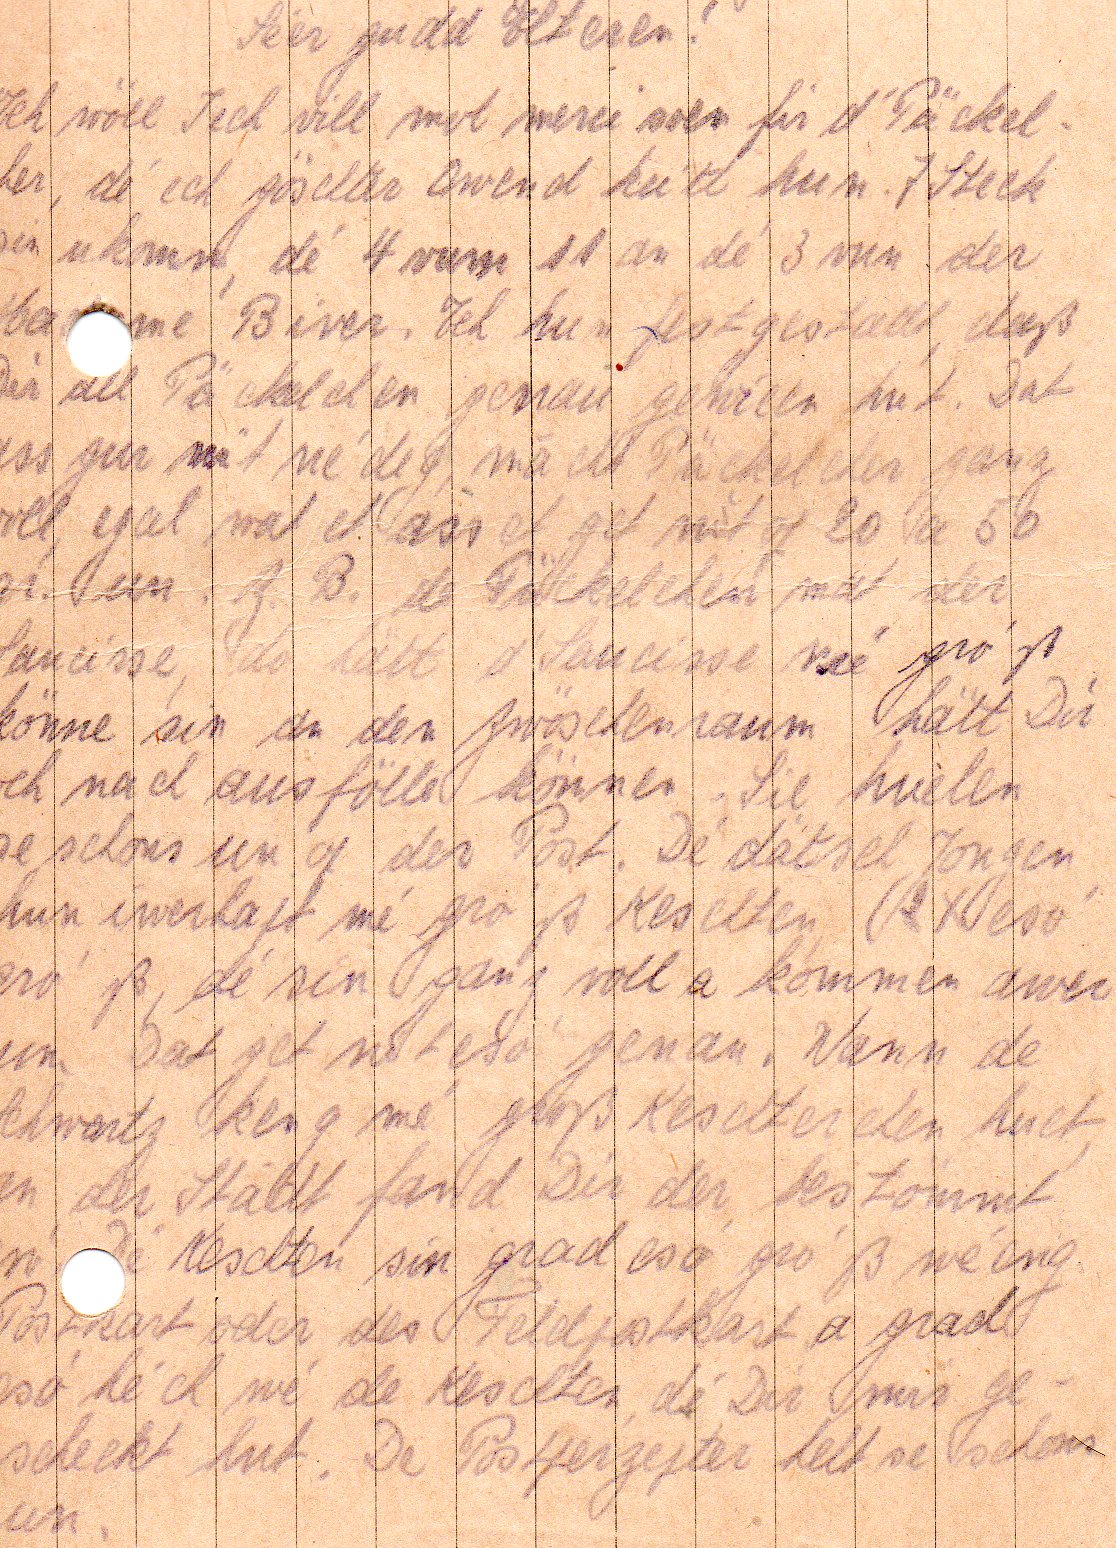 Léer gudd Élteren!
Ech wöll Iech vill mol merci soen fir d'Päckel-
her, dé ech göschter Owend kritt hun. 7 Steck
sin ukomm, dé 4 vum 11 an dé 3 vun der
me Biver. Ech hun festgestallt, daß
Dir all Päckelchen genau gewien hut. Dat
ass guer nöt nédeg, mächt Päckelcher ganz
voll, egal wat et ass et get nöt op 20 a 50
gr. un. Z. B. de Päckelchen mat der
Saucisse, do hätt d'Saucisse mé gro'ß
könne sin an den Zwöschenraum hätt Dir
och nach ausfölle können. Sie huelen
se schons un op der Post. Dé dätsch Jongen
hun iwerhapt mé gro'ß Keschten (2 X esó
gro'ß, dé sin ganz voll a kommen awer
um. Dat get nöt esó genau. Wann de
Schwartz keng mé groß Keschtercher huet,
an der Stadt fand Dir der bestömmt
nó. Dé Keschten sin grad esó gro'ß wé eng
Postkart oder des Feldpostkart a grad
esó héch wé de Keschten dé Dir mir ge-
scheckt hut. De Postferzejter helt se schons
un.